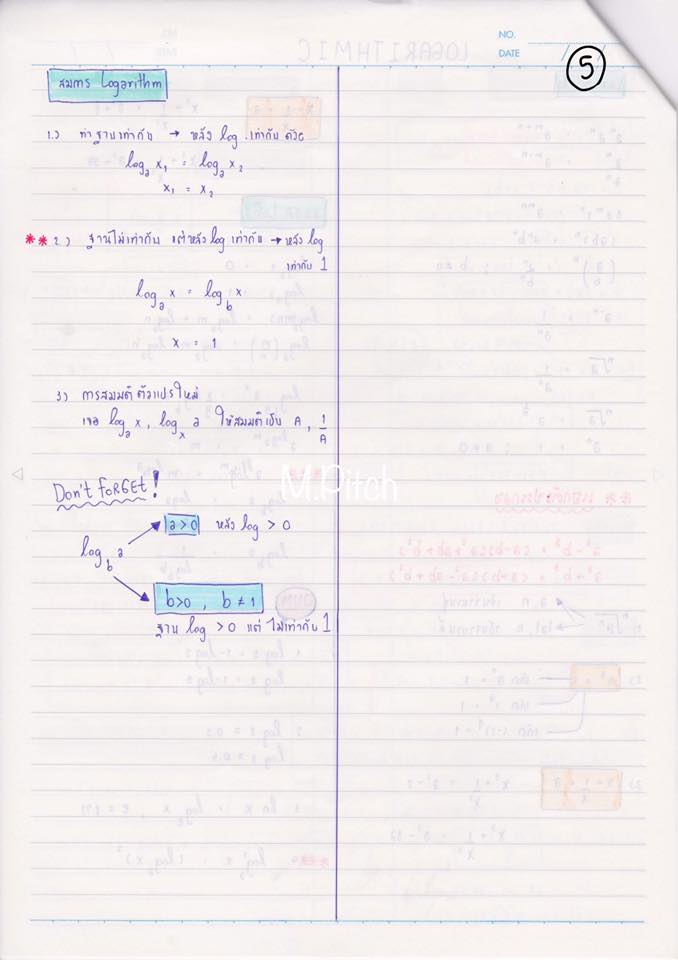 NO.
DATE
5
สมการ Logarithm
1.) ทำฐานเท่ากัน → หลัง log เท่ากันด้วย
logₐ x₁ = logₐ x₂
x₁ = x₂
**2.) ฐานไม่เท่ากัน แต่หลัง log เท่ากัน → หลัง log
เท่ากับ 1
logₐ x = log_b x
x = 1
3) การสมมติตัวแปรใหม่
เจอ logₐ x, logₓ a ให้สมมติเป็น A, 1/A
M.Pitch
Don't FORGET!
a > 0 หลัง log > 0
log_b a
b>0, b ≠ 1
ฐาน log > 0 แต่ ไม่เท่ากับ 1